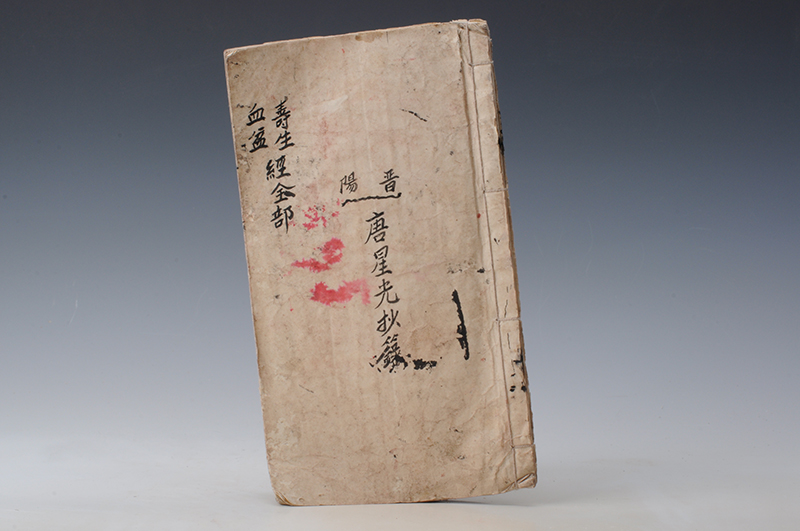 晋陽
唐星光抄
壽生
血盆
經全部